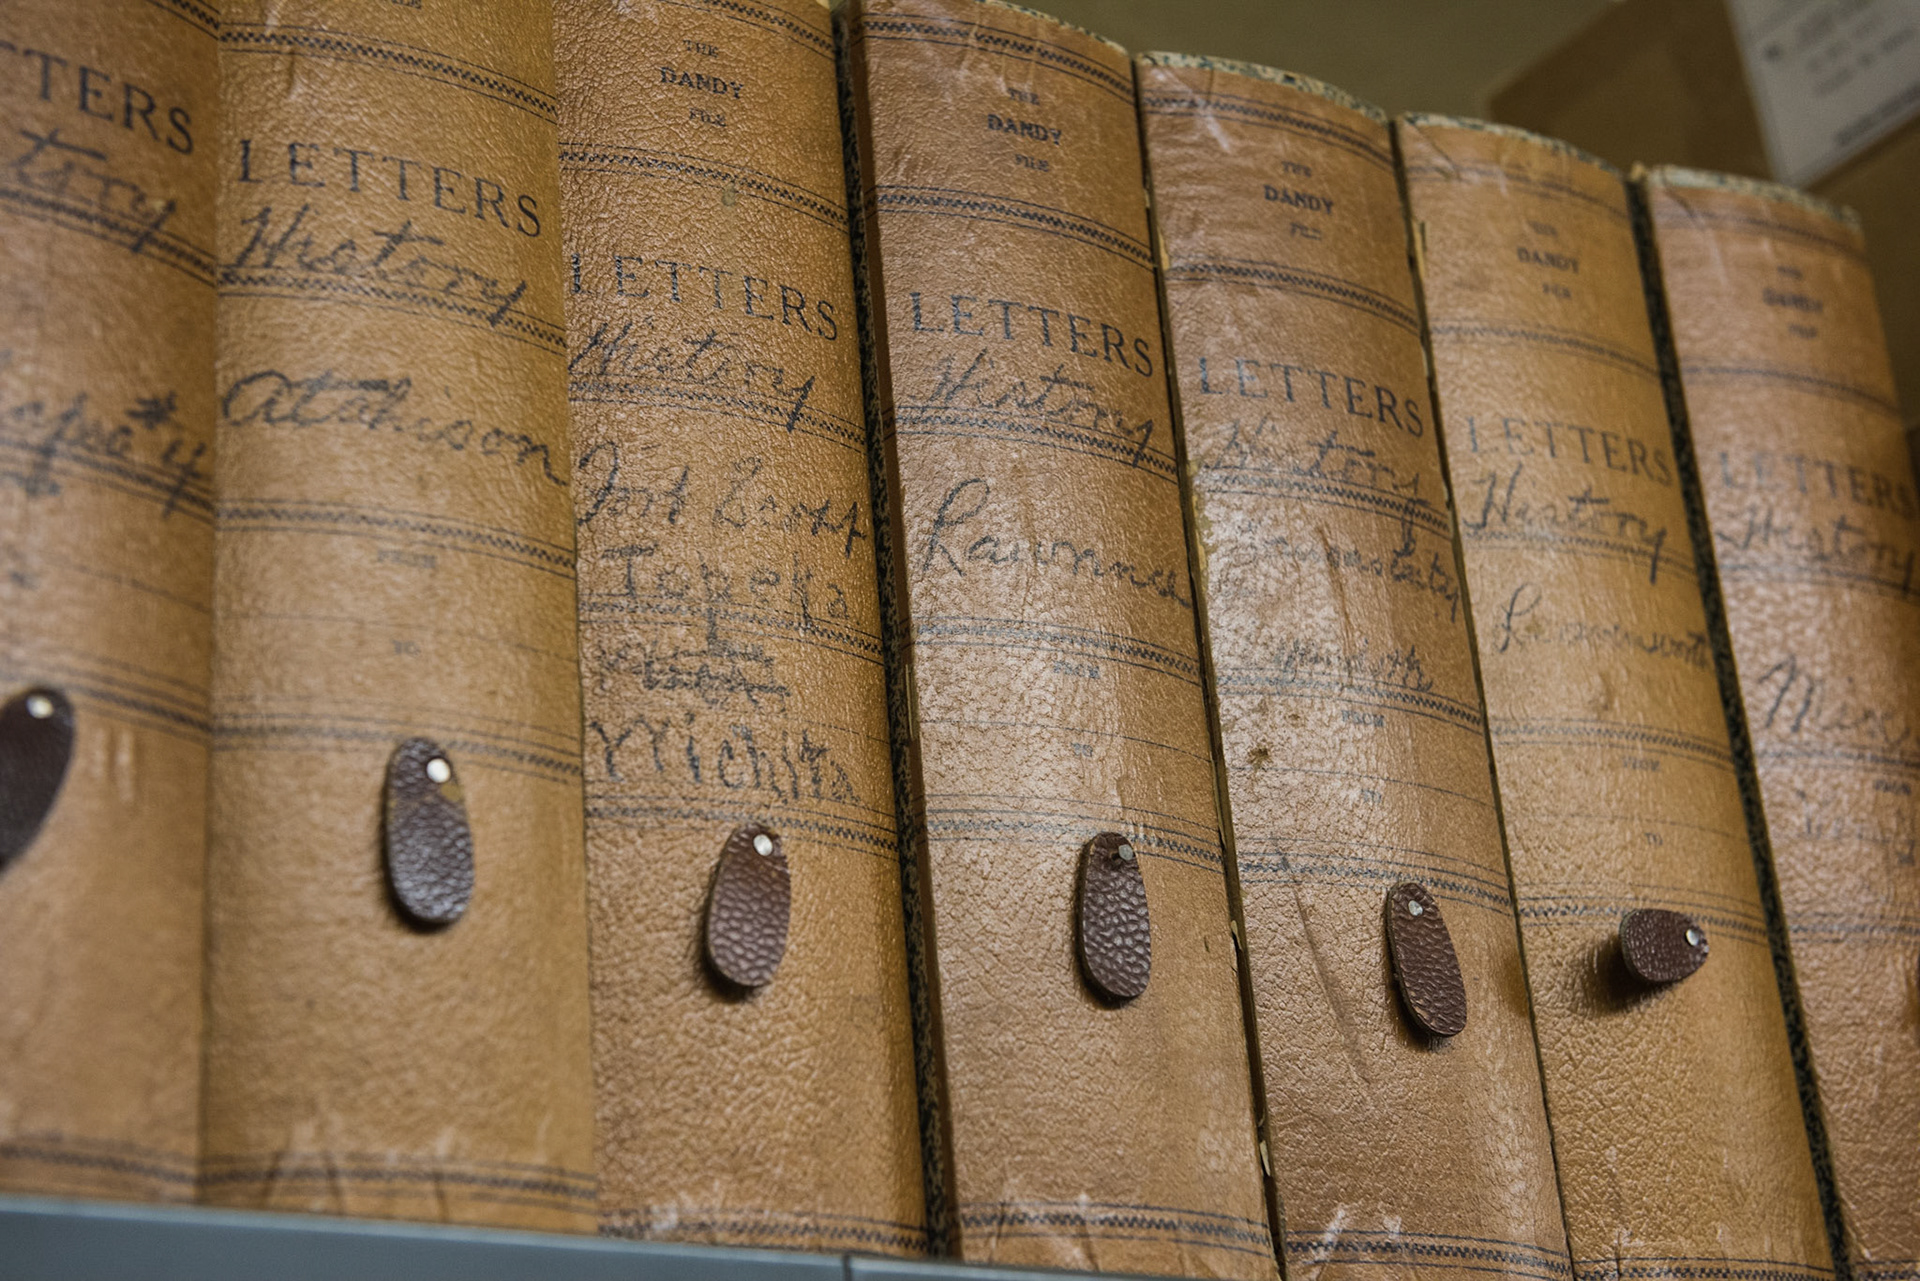 TTERS
tory
LETTERS
History
Atchison
TO
THE
DANDY
FILE
LETTERS
History
Fort Scott
Topeka
Wichita
THE
DANDY
FILE
LETTERS
History
Lawrence
FROM
TO
THE
DANDY
FILE
LETTERS
History
FROM
TO
THE
DANDY
FILE
LETTERS
History
Leavenworth
FROM
TO
THE
DANDY
FILE
LETTERS
History
FROM